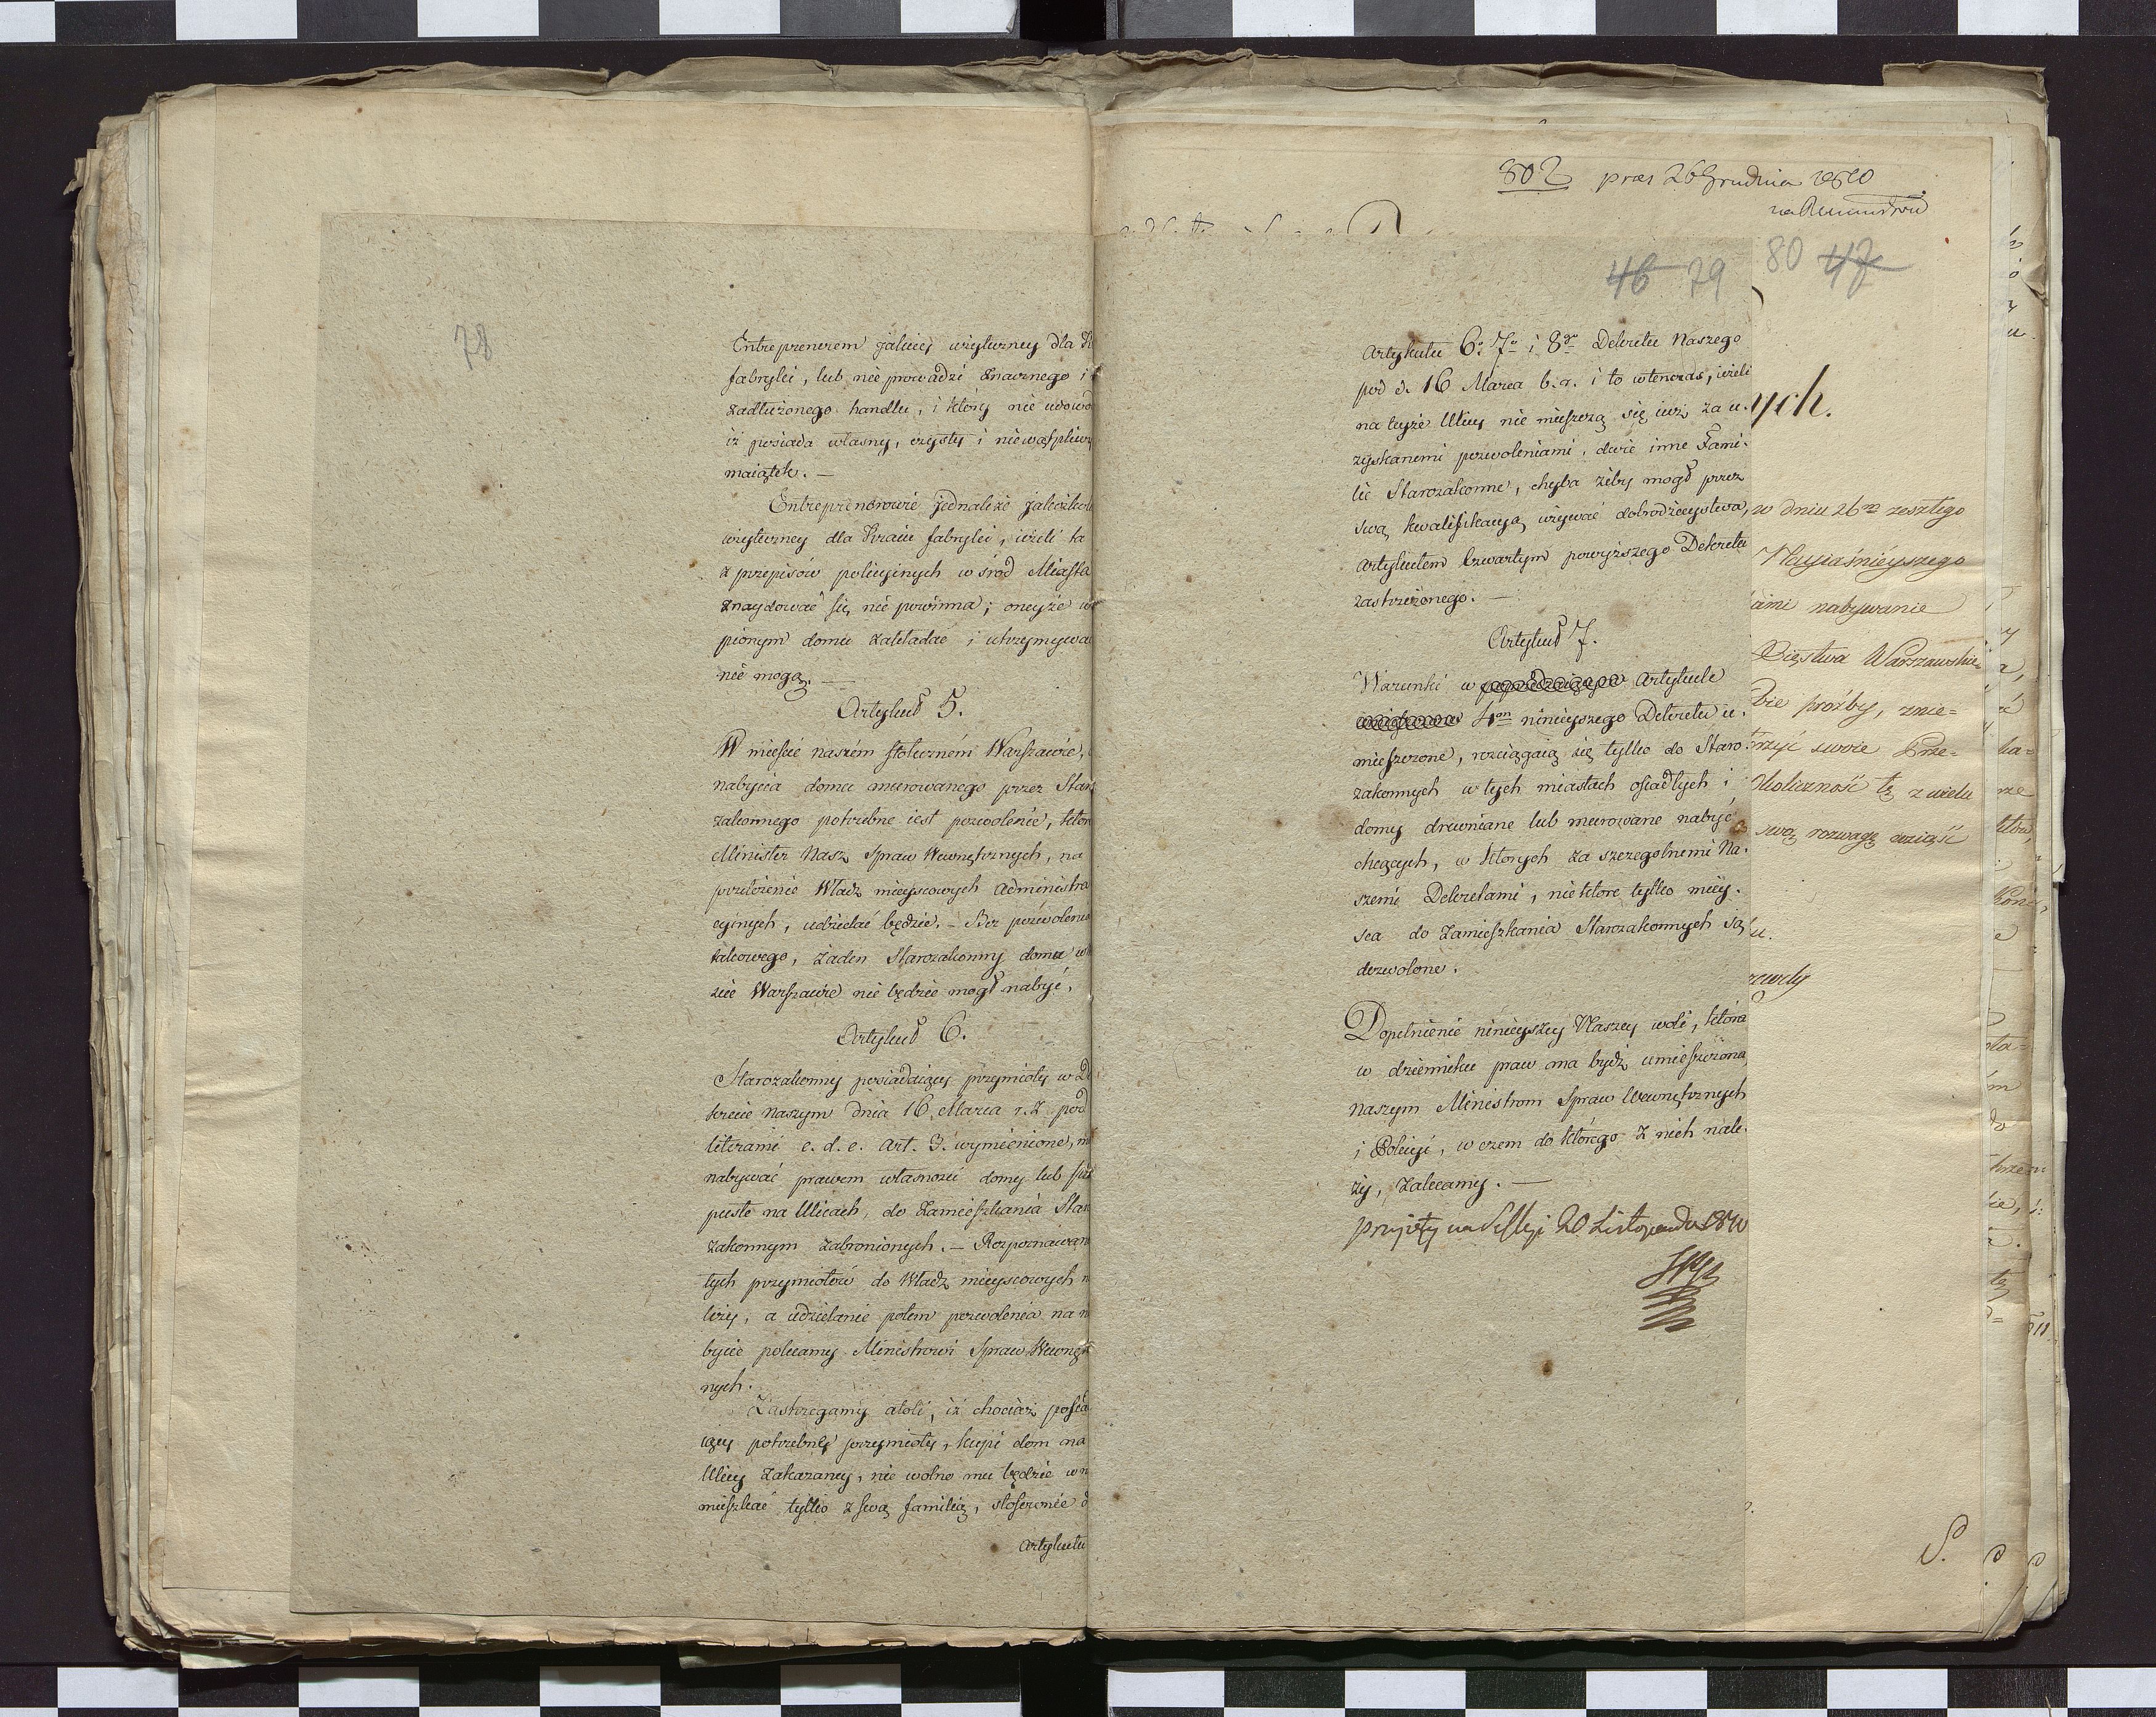 78
Entreprenerem jakiey użyteczney dla
fabryki, lub nie prowadzi znacznego i
zadłużonego handlu, i ktory nie udowo
iż posiada własny, czysty i niewątpliwy
maiątek. —
Entreprenerowie jednakże jakieżkol
użyteczney dla Kraiu fabryki, ieżeli ta
z przepisów policyinych w śród Miasta
znaydować się nie powinna; oneyże w
pionym domu zakładać i utrzymywać
nie mogą. —
Artykuł 5.
W mieście naszém stołeczném Warszawie,
nabycia domu murowanego przez Staro
zakonnego potrzebne iest pozwolenie, które
Minister Nasz Spraw Wewnętrznych, na
przełożenie Władz mieyscowych Administra
cyinych, udzielać będzie. — Bez pozwolenia
takowego, żaden Starozakonny domu w
ście Warszawie nie będzie mogł nabyć.
Artykuł 6.
Starozakonny posiadaiący przymioty w De
krecie naszym dnia 16. Marca r. z. pod
literami c. d. e. art. 3. wymienione, m
nabywać prawem własności domy lub pla
puste na Ulicach, do zamieszkania Staro
zakonnym zabronionych. — Rozpoznawani
tych przymiotów do Władz mieyscowych n
leży, a udzielanie potem pozwolenia na n
bycie polecamy Ministrowi Spraw Wewnętrz
nych.
Zastrzegamy atoli, iż chociaż posia
iący potrzebne przymioty, kupi dom na
Ulicy zakazaney, nie wolno mu będzie w n
mieszkać tylko z swą familią, stosownie d
Artykułu
802 praes 26 Grudnia 1810
46 79
80 47
Artykułu 6º 7º i 8go Dekretu Naszego
pod d. 16 Marca b. r. i to wtenczas, ieżeli
na teyże Ulicy nie mieszczą się iuż za u-
zyskanemi pozwoleniami, dwie inne Fami-
lie Starozakonne, chyba żeby mogł przez
swą kwalifikacyą używać dobrodzieystwa,
Artykułem czwartym powyższego Dekretu
zastrzeżonego. —
Artykuł 7.
Warunki w poprzedzaiącym Artykule
4ym ninieyszego Dekretu u-
mieszczone, rozciągaią się tylko do Staro-
zakonnych w tych miastach osiadłych i
domy drewniane lub murowane nabyć
chcących, w ktorych za szczegolnemi Na-
szemi Dekretami, niektore tylko miey-
sca do zamieszkania Starozakonnych są
dozwolone.
Dopełnienie ninieyszey Naszey woli, która
w dzienniku praw ma bydź umieszczona
naszym Ministrom Spraw Wewnętrznych
i Policyi, w czem do którego z nich nale-
ży, zalecamy. —
Przyięty na Sessyi 20 Listopada 1810
ych.
w dniu 26go zeszłego
Nayiaśnieyszego
ami nabywanie
Xięstwa Warszawskie-
bie prośby, znie-
rzyć swoie Prze-
Okoliczność tę z wielu
swą rozwagę wziąść
S.